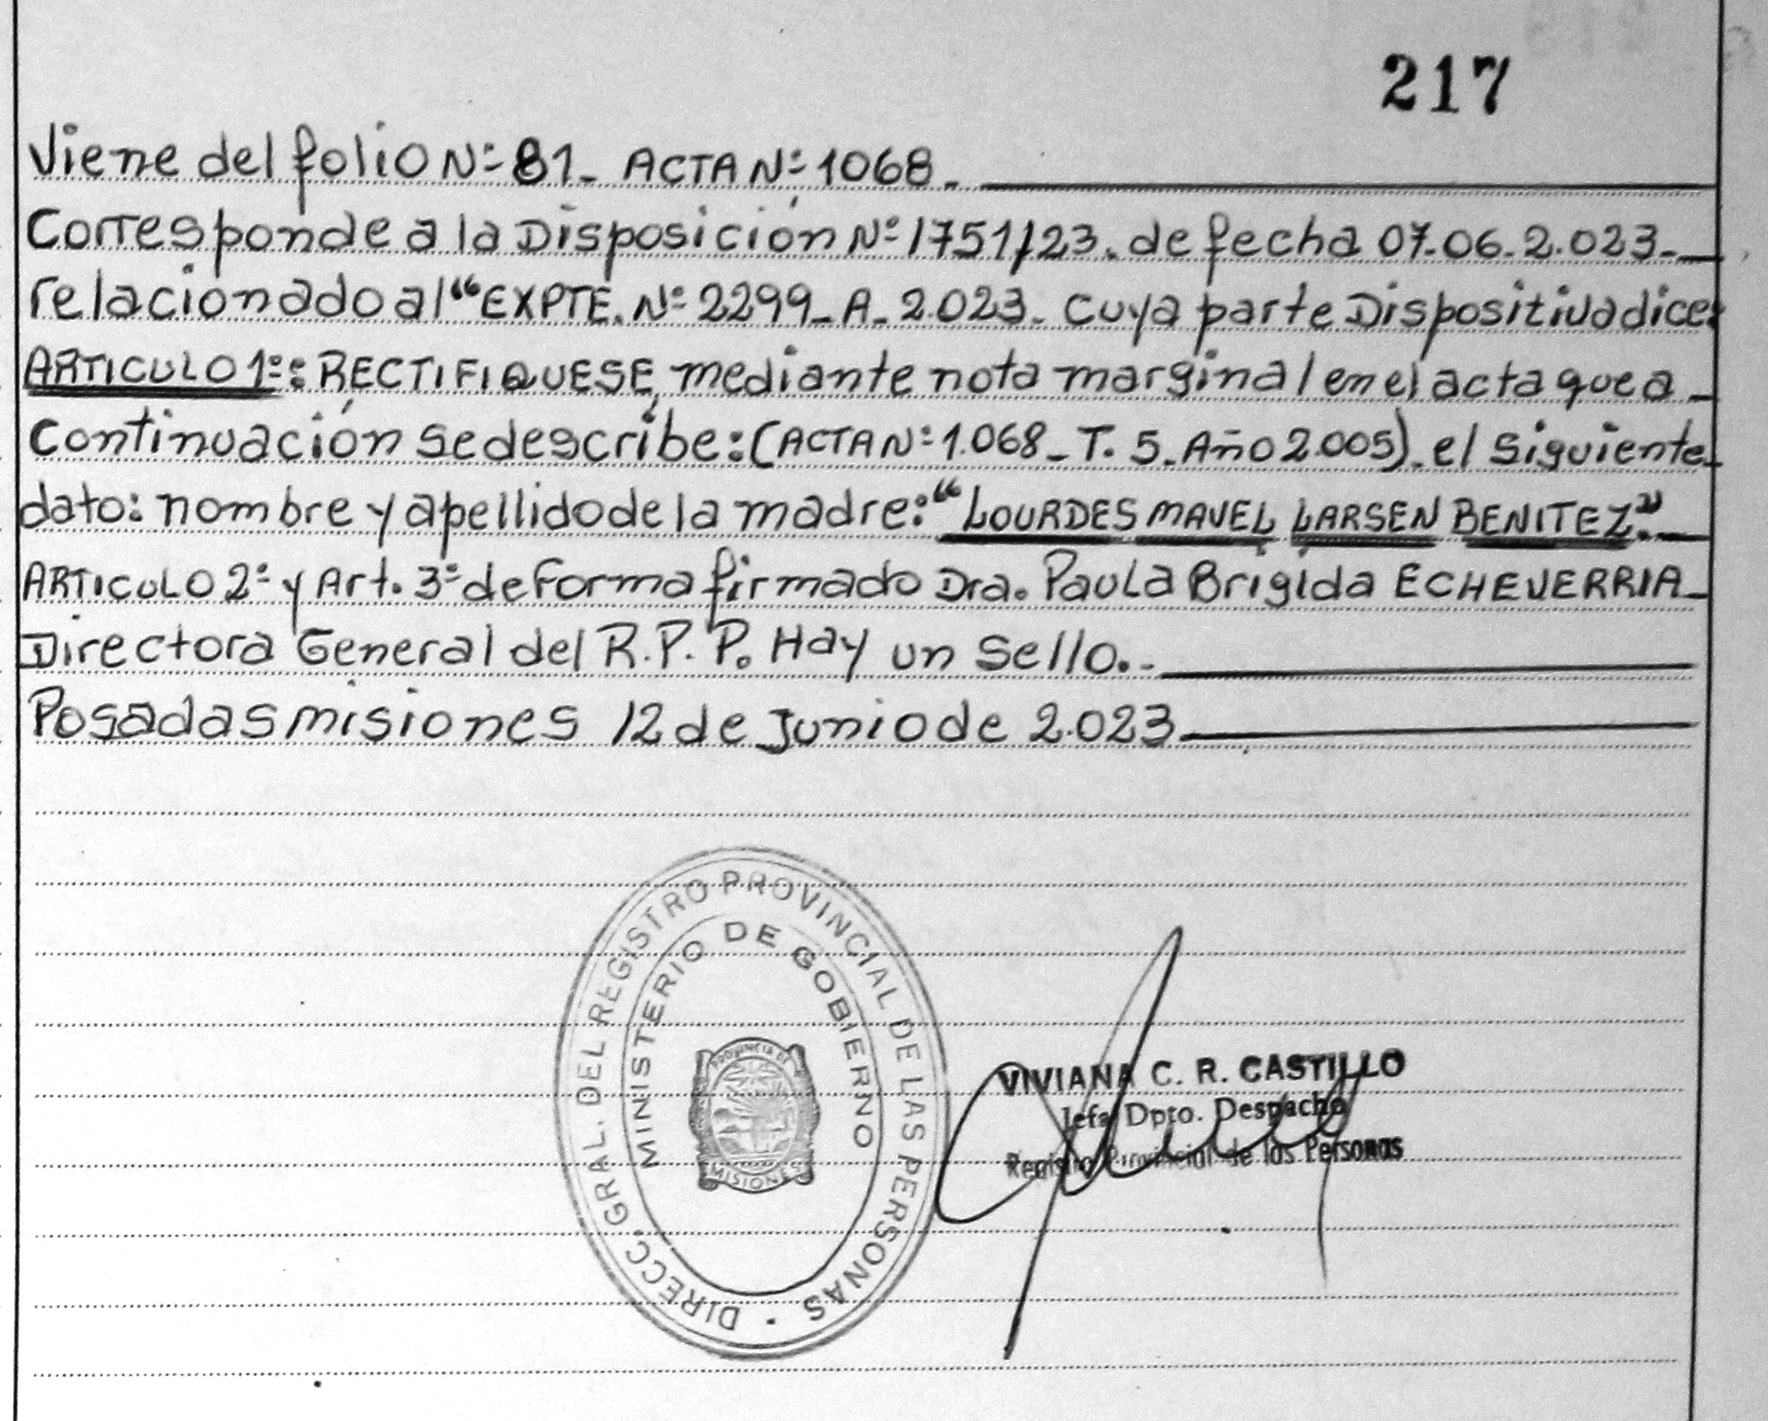 217
Viene del folio Nº 81_ ACTA Nº 1068_
Corresponde a la Disposición Nº 1751/23. de fecha 07-06-2.023_
relacionado al "EXPTE. Nº 2299_A_2.023_ Cuya parte Dispositiva dice:
ARTICULO 1º: RECTIFIQUESE, mediante nota marginal en el acta que a_
Continuación se describe: (ACTA Nº 1.068_T. 5_Año 2.005). el Siguiente_
dato: nombre y apellido de la madre: "LOURDES MAVEL LARSEN BENITEZ"._
ARTICULO 2º y Art. 3º de Forma firmado Dra. Paula Brígida ECHEVERRIA_
Directora General del R.P.P. Hay un Sello._
Posadas misiones 12 de Junio de 2.023
DIRECC. GRAL. DEL REGISTRO PROVINCIAL DE LAS PERSONAS
MINISTERIO DE GOBIERNO
PROVINCIA DE
MISIONES
VIVIANA C. R. CASTILLO
Jefa Dpto. Despacho
Registro Provincial de las Personas